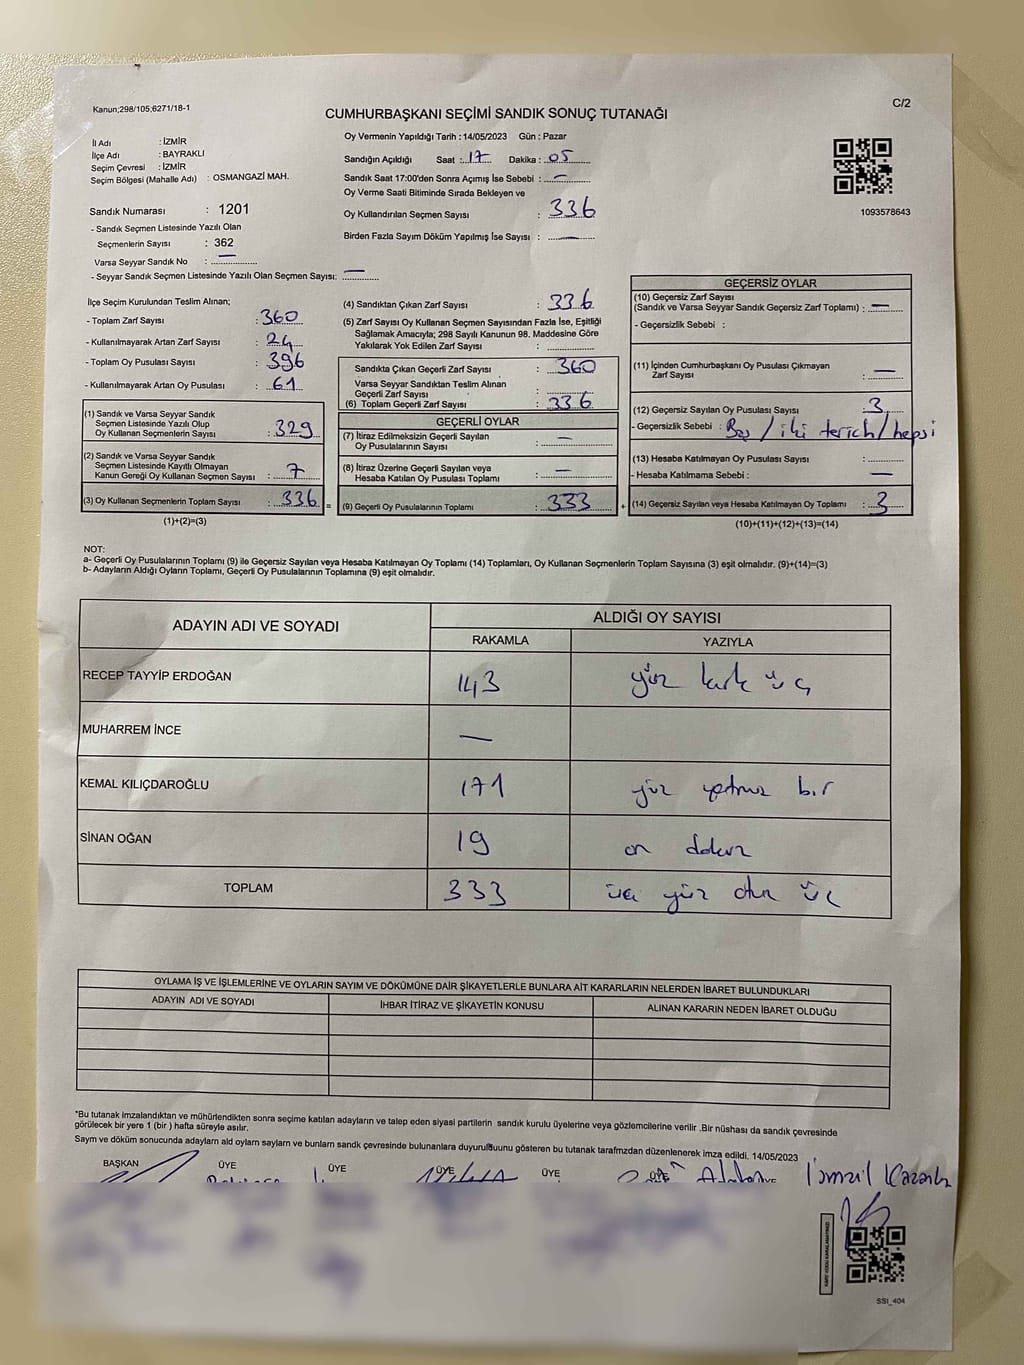 Kanun;298/105;6271/18-1
C/2
CUMHURBAŞKANI SEÇİMİ SANDIK SONUÇ TUTANAĞI
İl Adı : İZMİR
İlçe Adı : BAYRAKLI
Seçim Çevresi : İZMİR
Seçim Bölgesi (Mahalle Adı) : OSMANGAZİ MAH.
Sandık Numarası : 1201
- Sandık Seçmen Listesinde Yazılı Olan
Seçmenlerin Sayısı : 362
Varsa Seyyar Sandık No : —
- Seyyar Sandık Seçmen Listesinde Yazılı Olan Seçmen Sayısı: —
Oy Vermenin Yapıldığı Tarih : 14/05/2023 Gün : Pazar
Sandığın Açıldığı Saat : 17 Dakika : 05
Sandık Saat 17:00'den Sonra Açımış İse Sebebi : —
Oy Verme Saati Bitiminde Sırada Bekleyen ve
Oy Kullandırılan Seçmen Sayısı : 336
Birden Fazla Sayım Döküm Yapılmış İse Sayısı : —
1093578643
İlçe Seçim Kurulundan Teslim Alınan;
- Toplam Zarf Sayısı : 360
- Kullanılmayarak Artan Zarf Sayısı : 24
- Toplam Oy Pusulası Sayısı : 396
- Kullanılmayarak Artan Oy Pusulası : 61
(1) Sandık ve Varsa Seyyar Sandık
Seçmen Listesinde Yazılı Olup
Oy Kullanan Seçmenlerin Sayısı : 329
(2) Sandık ve Varsa Seyyar Sandık
Seçmen Listesinde Kayıtlı Olmayan
Kanun Gereği Oy Kullanan Seçmen Sayısı : 7
(3) Oy Kullanan Seçmenlerin Toplam Sayısı : 336
(1)+(2)=(3)
(4) Sandıktan Çıkan Zarf Sayısı : 336
(5) Zarf Sayısı Oy Kullanan Seçmen Sayısından Fazla İse, Eşitliği
Sağlamak Amacıyla; 298 Sayılı Kanunun 98. Maddesine Göre
Yakılarak Yok Edilen Zarf Sayısı :
Sandıkta Çıkan Geçerli Zarf Sayısı : 360
Varsa Seyyar Sandıktan Teslim Alınan
Geçerli Zarf Sayısı :
(6) Toplam Geçerli Zarf Sayısı : 336
GEÇERLİ OYLAR
(7) İtiraz Edilmeksizin Geçerli Sayılan
Oy Pusulası Toplamı : —
(8) İtiraz Üzerine Geçerli Sayılan veya
Hesaba Katılan Oy Pusulası Toplamı : —
= (9) Geçerli Oy Pusulalarının Toplamı : 333
GEÇERSİZ OYLAR
(10) Geçersiz Zarf Sayısı
(Sandık ve Varsa Seyyar Sandık Geçersiz Zarf Toplamı) : —
- Geçersizlik Sebebi :
(11) İçinden Cumhurbaşkanı Oy Pusulası Çıkmayan
Zarf Sayısı : —
(12) Geçersiz Sayılan Oy Pusulası Sayısı : 3
- Geçersizlik Sebebi : Boş / iki tercih / hepsi
(13) Hesaba Katılmayan Oy Pusulası Sayısı :
- Hesaba Katılmama Sebebi : —
+ (14) Geçersiz Sayılan veya Hesaba Katılmayan Oy Toplamı : 3
(10)+(11)+(12)+(13)=(14)
NOT:
a- Geçerli Oy Pusulalarının Toplamı (9) ile Geçersiz Sayılan veya Hesaba Katılmayan Oy Toplamı (14) Toplamları, Oy Kullanan Seçmenlerin Toplam Sayısına (3) eşit olmalıdır. (9)+(14)=(3)
b- Adayların Aldığı Oyların Toplamı, Geçerli Oy Pusulalarının Toplamına (9) eşit olmalıdır.
ADAYIN ADI VE SOYADI
ALDIĞI OY SAYISI
RAKAMLA YAZIYLA
RECEP TAYYİP ERDOĞAN 143 yüz kırk üç
MUHARREM İNCE —
KEMAL KILIÇDAROĞLU 171 yüz yetmiş bir
SİNAN OĞAN 19 on dokuz
TOPLAM 333 üç yüz otuz üç
OYLAMA İŞ VE İŞLEMLERİNE VE OYLARIN SAYIM VE DÖKÜMÜNE DAİR ŞİKAYETLERLE BUNLARA AİT KARARLARIN NELERDEN İBARET BULUNDUKLARI
ADAYIN ADI VE SOYADI İHBAR İTİRAZ VE ŞİKAYETİN KONUSU ALINAN KARARIN NEDEN İBARET OLDUĞU
*Bu tutanak imzalandıktan ve mühürlendikten sonra seçime katılan adayların ve talep eden siyasi partilerin sandık kurulu üyelerine veya gözlemcilerine verilir .Bir nüshası da sandık çevresinde
görülecek bir yere 1 (bir ) hafta süreyle asılır.
Sayım ve döküm sonucunda adayların aldı oyların sayıları ve bunların sandık çevresinde bulunanlara duyurulduğunu gösteren bu tutanak tarafımızdan düzenlenerek imza edildi. 14/05/2023
BAŞKAN ÜYE ÜYE ÜYE ÜYE ÜYE
İsmail
SSI_404